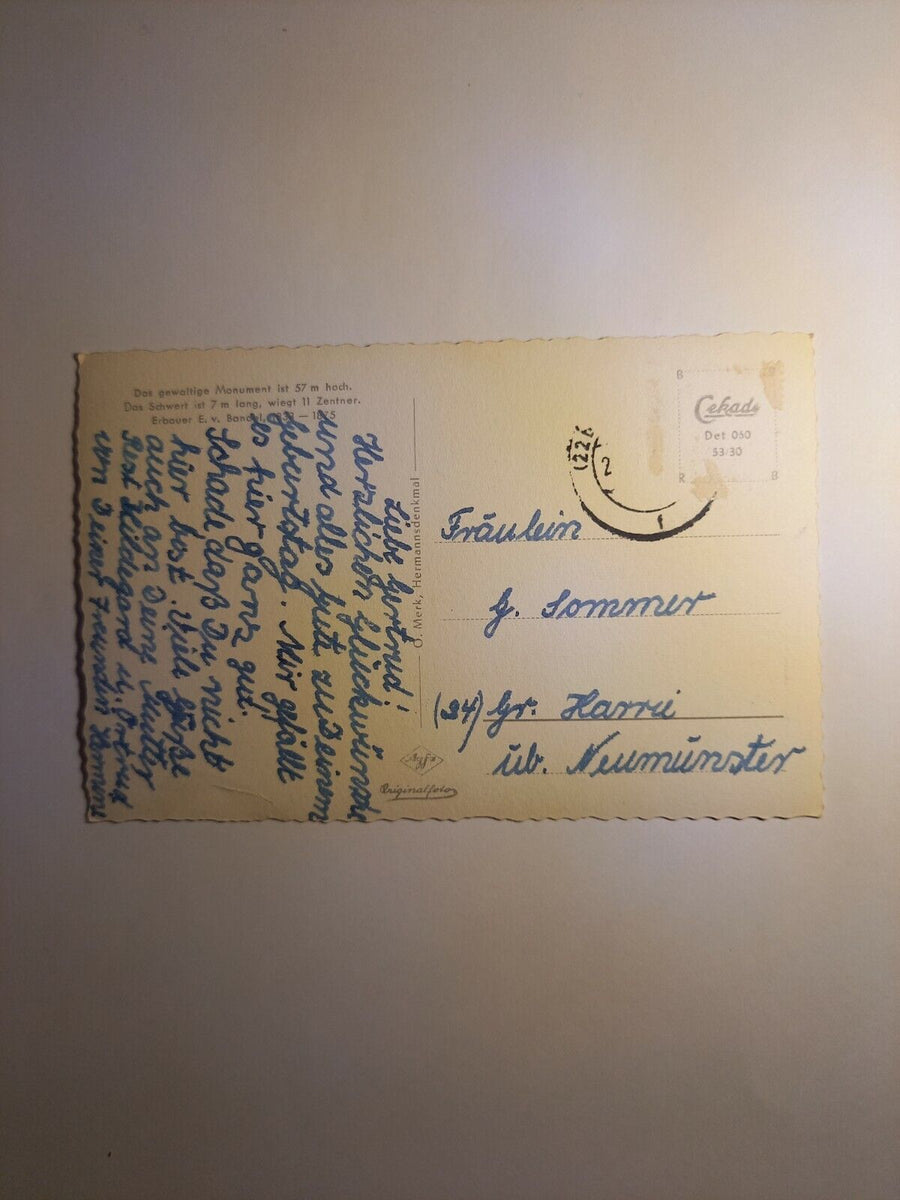 Das gewaltige Monument ist 57 m hoch.
Das Schwert ist 7 m lang, wiegt 11 Zentner.
Erbauer E. v. Bandel, 1838 — 1875
Liebe Gertrud!
Herzlichen Glückwunsch
und alles Gute zu Deinem
Geburtstag. Mir gefällt
es hier ganz gut.
Schade daß Du nicht
hier bist. Viele Grüße
auch an Deine Mutter
von Deiner Freundin
O. Merk, Hermannsdenkmal
Agfa
Originalfoto
(22
2
B
Cekade
Det 060
53/30
R
B
Fräulein
G. Sommer
(24) Gr. Harrie
üb. Neumünster